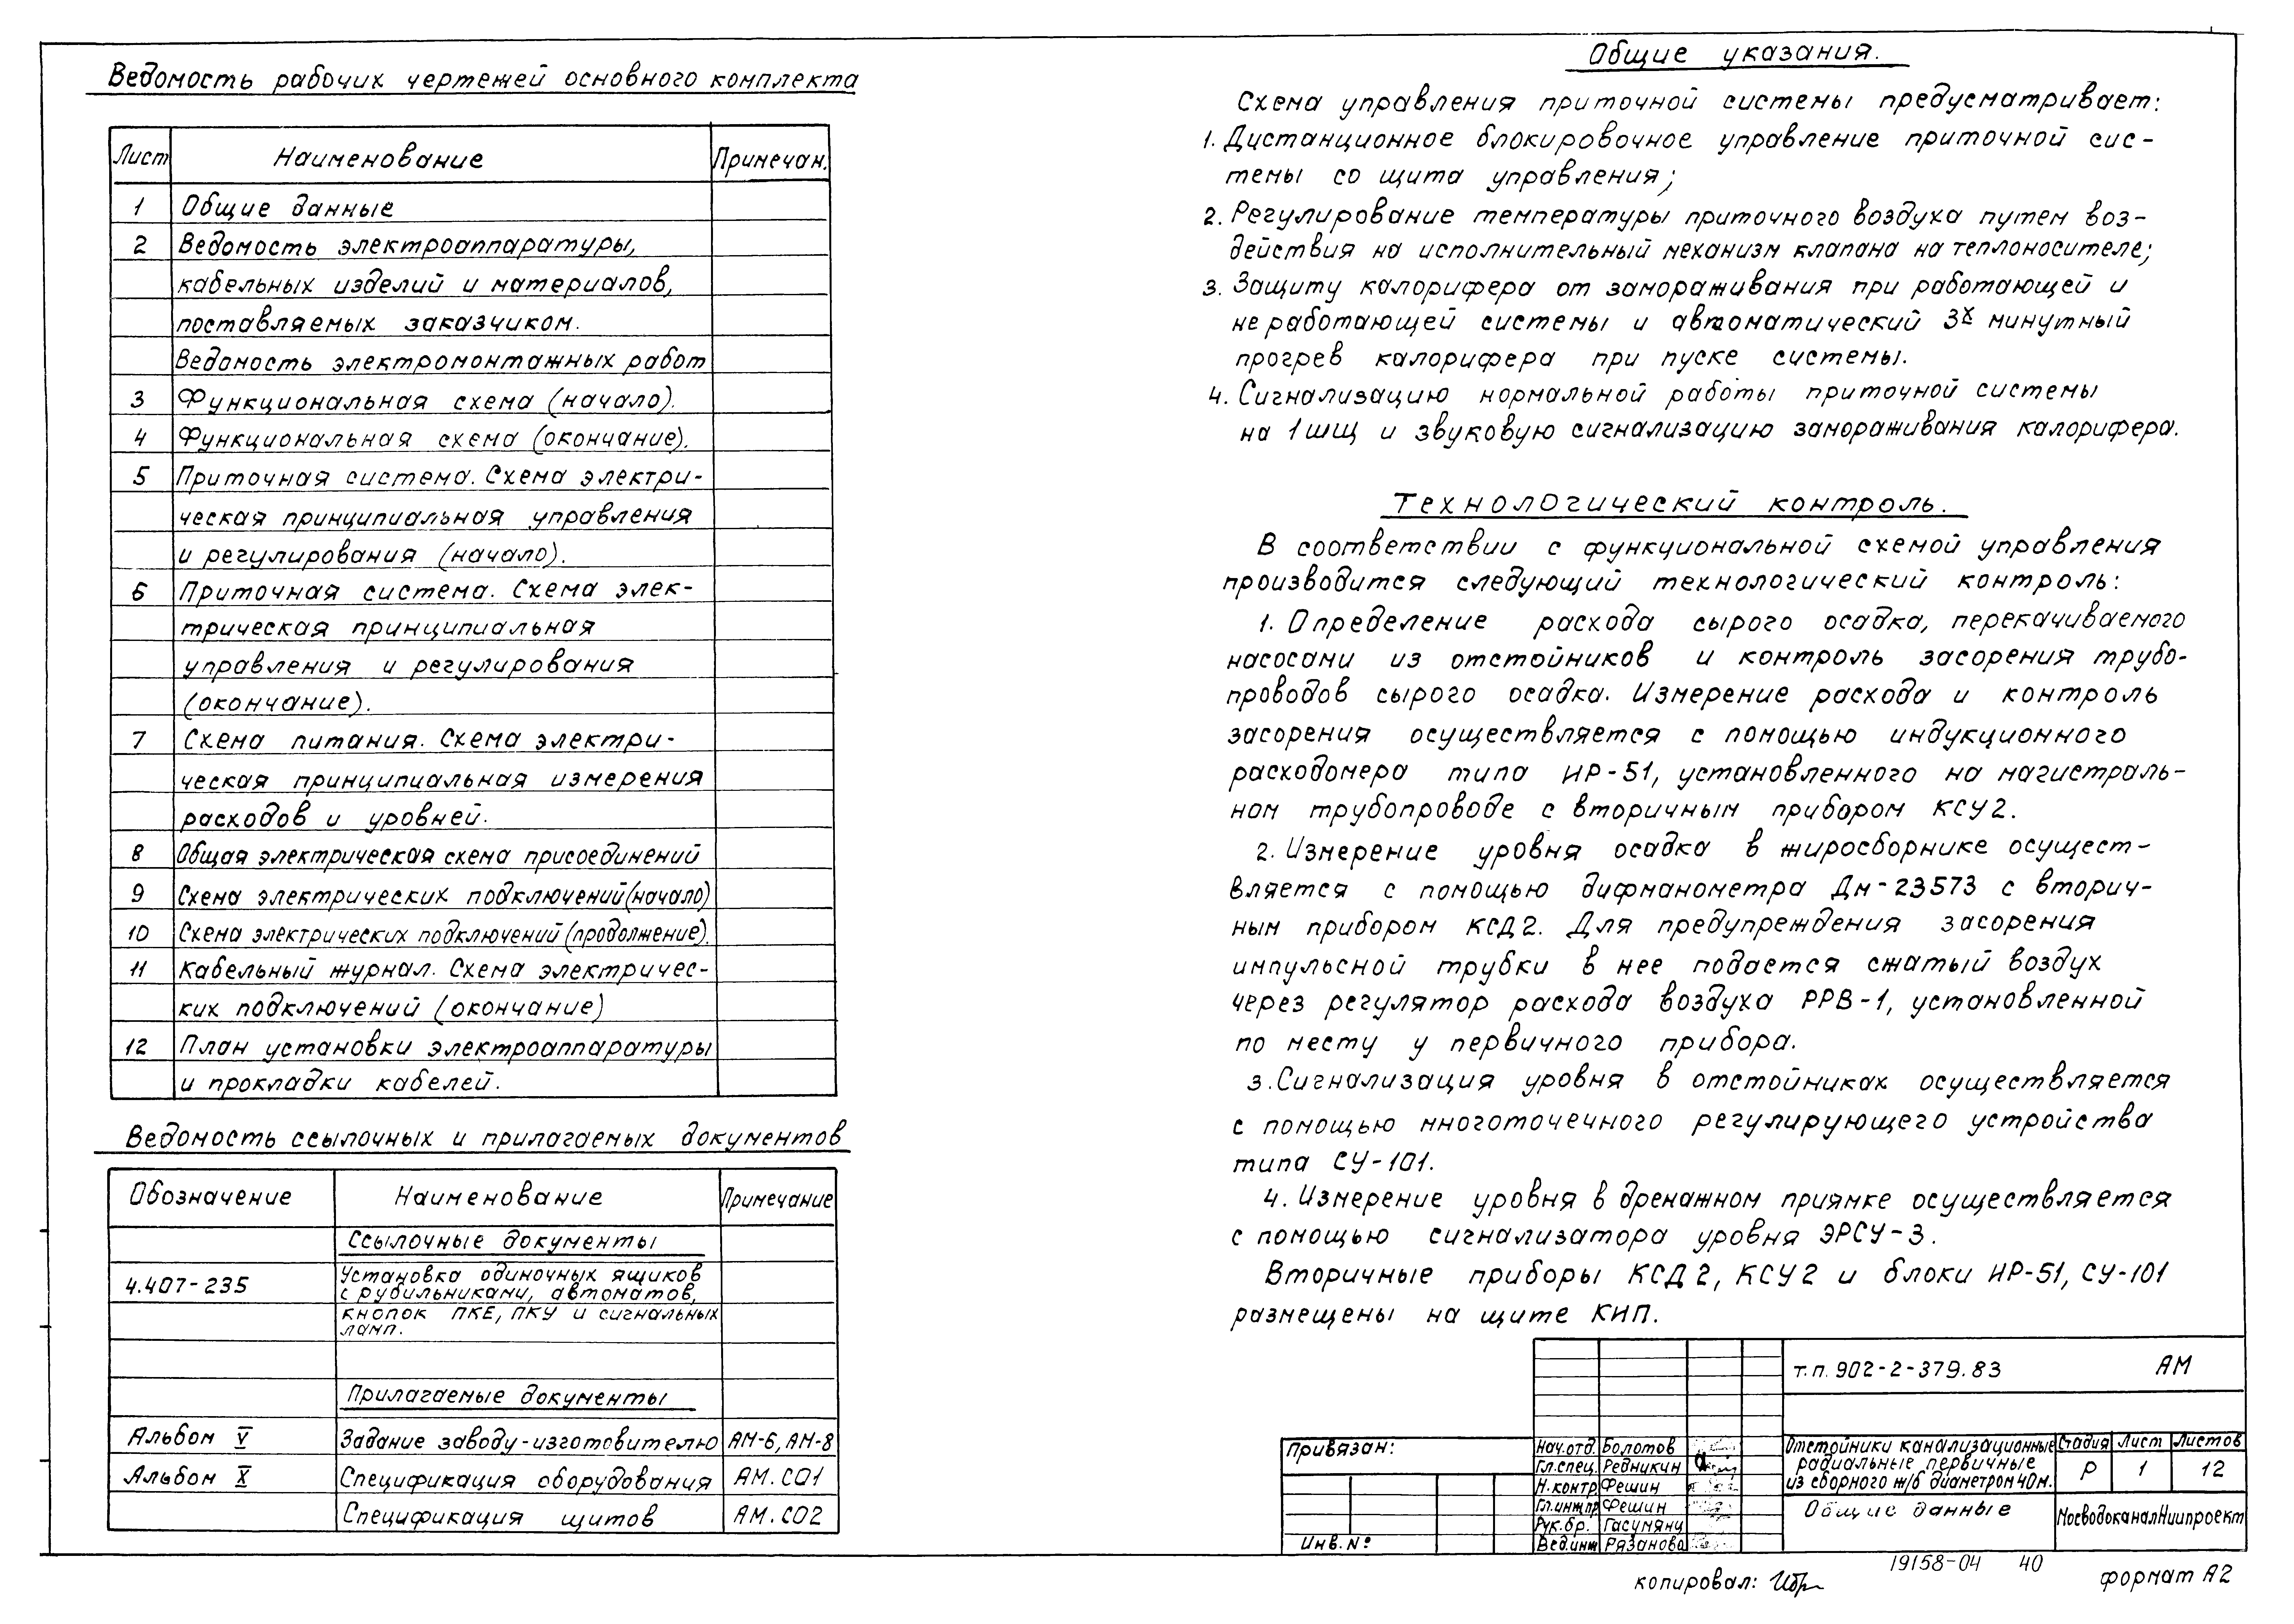 Ведомость рабочих чертежей основного комплекта
Лист Наименование Примечан.
1 Общие данные
2 Ведомость электроаппаратуры,
кабельных изделий и материалов,
поставляемых заказчиком.
Ведомость электромонтажных работ
3 Функциональная схема (начало).
4 Функциональная схема (окончание).
5 Приточная система. Схема электри-
ческая принципиальная управления
и регулирования (начало).
6 Приточная система. Схема элек-
трическая принципиальная
управления и регулирования
(окончание).
7 Схема питания. Схема электри-
ческая принципиальная измерения
расходов и уровней.
8 Общая электрическая схема присоединений
9 Схема электрических подключений (начало)
10 Схема электрических подключений (продолжение).
11 Кабельный журнал. Схема электричес-
ких подключений (окончание)
12 План установки электроаппаратуры
и прокладки кабелей.
Ведомость ссылочных и прилагаемых документов
Обозначение Наименование Примечание
Ссылочные документы
4.407-235 Установка одиночных ящиков
с рубильниками, автоматов,
кнопок ПКЕ, ПКУ и сигнальных
ламп.
Прилагаемые документы
Альбом V Задание заводу-изготовителю АМ-6, АМ-8
Альбом X Спецификация оборудования АМ.СО1
Спецификация щитов АМ.СО2
Общие указания.
Схема управления приточной системы предусматривает:
1. Дистанционное блокировочное управление приточной сис-
темы со щита управления;
2. Регулирование температуры приточного воздуха путем воз-
действия на исполнительный механизм клапана на теплоносителе;
3. Защиту калорифера от замораживания при работающей и
не работающей системы и автоматический 3х минутный
прогрев калорифера при пуске системы.
4. Сигнализацию нормальной работы приточной системы
на 1ШЩ и звуковую сигнализацию замораживания калорифера.
Технологический контроль.
В соответствии с функциональной схемой управления
производится следующий технологический контроль:
1. Определение расхода сырого осадка, перекачиваемого
насосами из отстойников и контроль засорения трубо-
проводов сырого осадка. Измерение расхода и контроль
засорения осуществляется с помощью индукционного
расходомера типа ИР-51, установленного на магистраль-
ном трубопроводе с вторичным прибором КСУ2.
2. Измерение уровня осадка в жиросборнике осущест-
вляется с помощью дифманометра Дм-23573 с вторич-
ным прибором КСД2. Для предупреждения засорения
импульсной трубки в нее подается сжатый воздух
через регулятор расхода воздуха РРВ-1, установленной
по месту у первичного прибора.
3. Сигнализация уровня в отстойниках осуществляется
с помощью многоточечного регулирующего устройства
типа СУ-101.
4. Измерение уровня в дренажном приямке осуществляется
с помощью сигнализатора уровня ЭРСУ-3.
Вторичные приборы КСД2, КСУ2 и блоки ИР-51, СУ-101
размещены на щите КИП.
т.п. 902-2-379.83 АМ
Привязан:
Инв.№
Нач.отд. Болотов
Гл.спец. Редникин
Н.контр Фешин
Гл.инж.пр Фешин
Рук.бр. Гасумянц
Вед.инж Рязанова
Отстойники канализационные
радиальные первичные
из сборного ж/б диаметром 40м.
Стадия Лист Листов
Р 1 12
Общие данные
МосводоканалНиипроект
19158-04 40
копировал:
формат А2